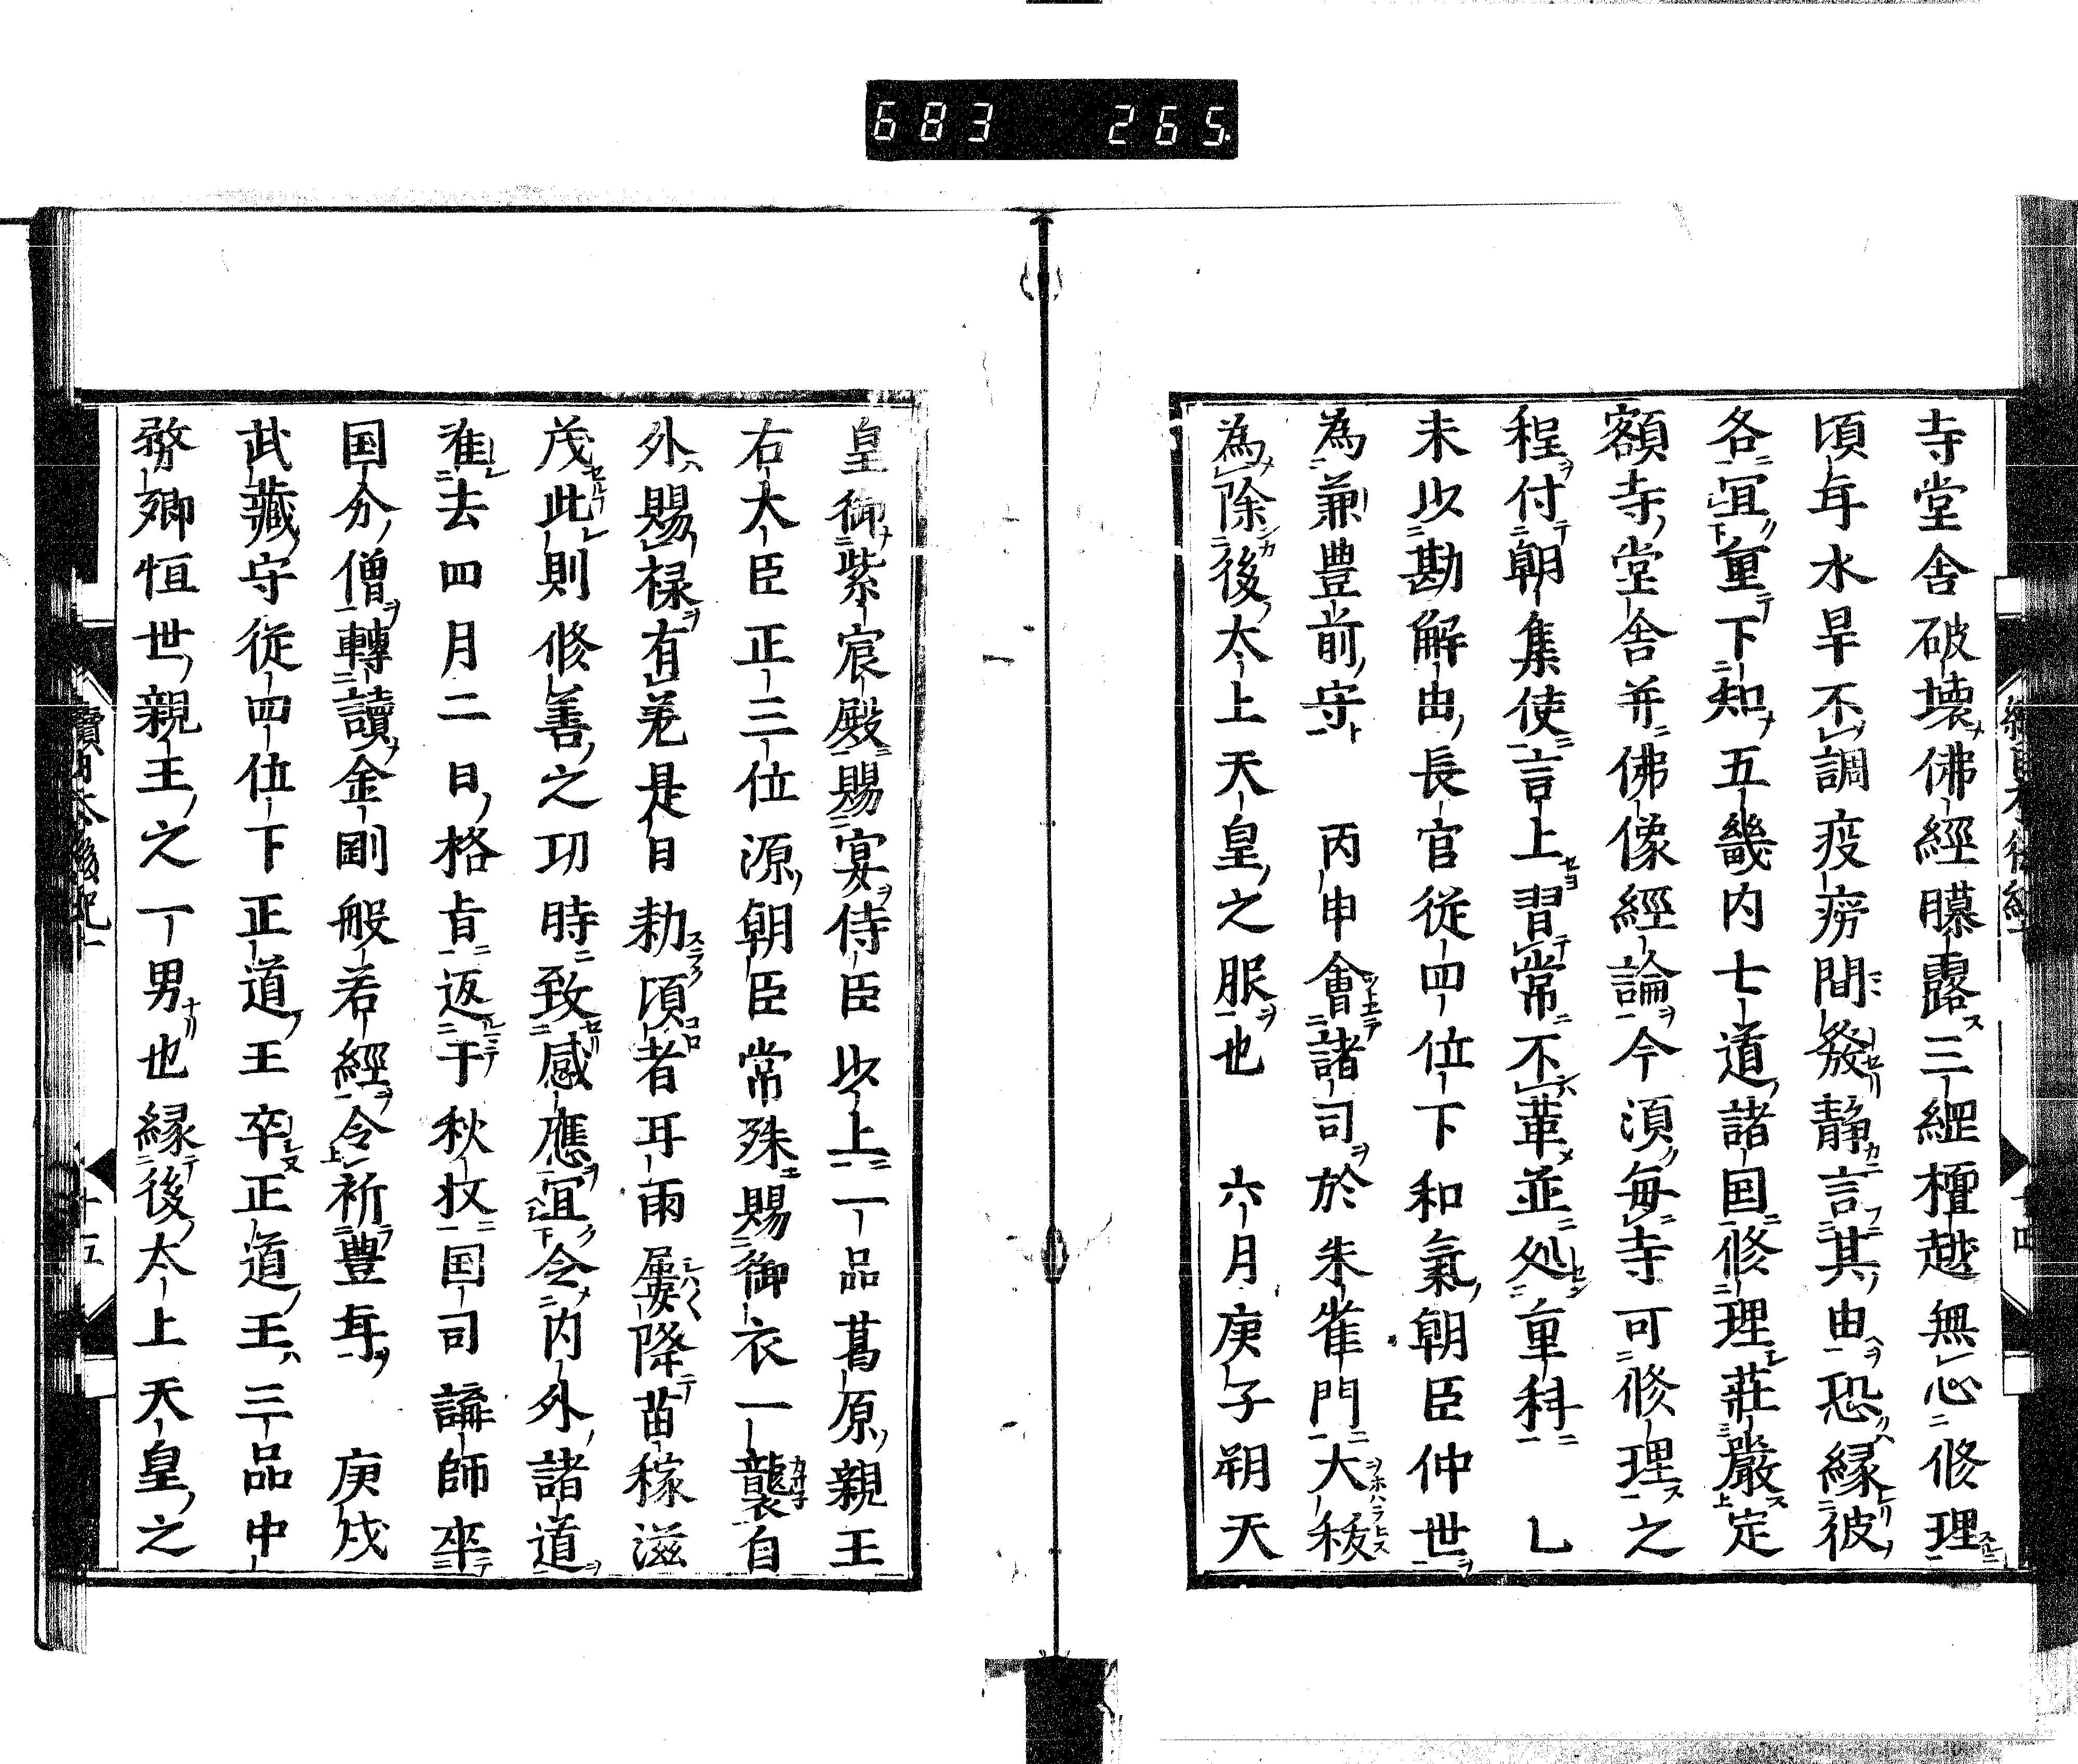 683 265
寺堂舎破壊佛經曝露三綱檀越無心修理
頃年水旱不調疫癘間發静言其由恐縁彼
各宜重下知五畿内七道諸国修理莊嚴定
額寺堂舎并佛像經論今須毎寺可修理之
程付朝集使言上習常不革並処重科　乙
未以勘解由長官従四位下和氣朝臣仲世
為兼豊前守　丙申會諸司於朱雀門大秡
為除後太上天皇之服也　六月庚子朔天
皇御紫宸殿賜宴侍臣以上一品葛原親王
右大臣正三位源朝臣常殊賜御衣一襲自
外賜禄有差是日勅頃者耳雨屡降苗稼滋
茂此則修善之功時致感應宜令内外諸道
准去四月二日格旨返于秋收国司講師率
国分僧轉讀金剛般若經令祈豊年　庚戌
武藏守従四位下正道王卒正道王三品中
務卿恒世親王之一男也縁後太上天皇之
十五